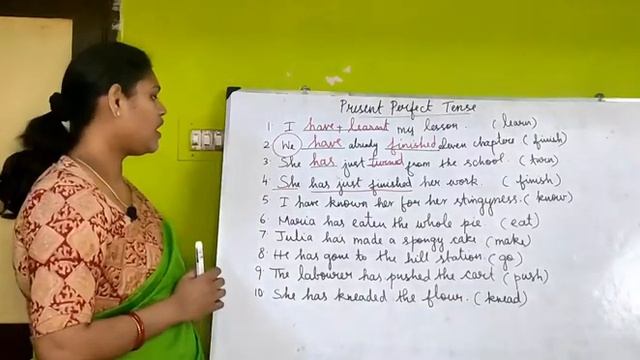 Present Perfect Tense
1. I have + learnt my lesson. (learn)
2. We have already finished eleven chapters (finish)
3. She has just turned from the school. (turn)
4. She has just finished her work. (finish)
5. I have known her for her stingyness. (know)
6. Maria has eaten the whole pie. (eat)
7. Julia has made a spongy cake (make)
8. He has gone to the hill station. (go)
9. The labourer has pushed the cart (push)
10. She has kneaded the flour. (knead)